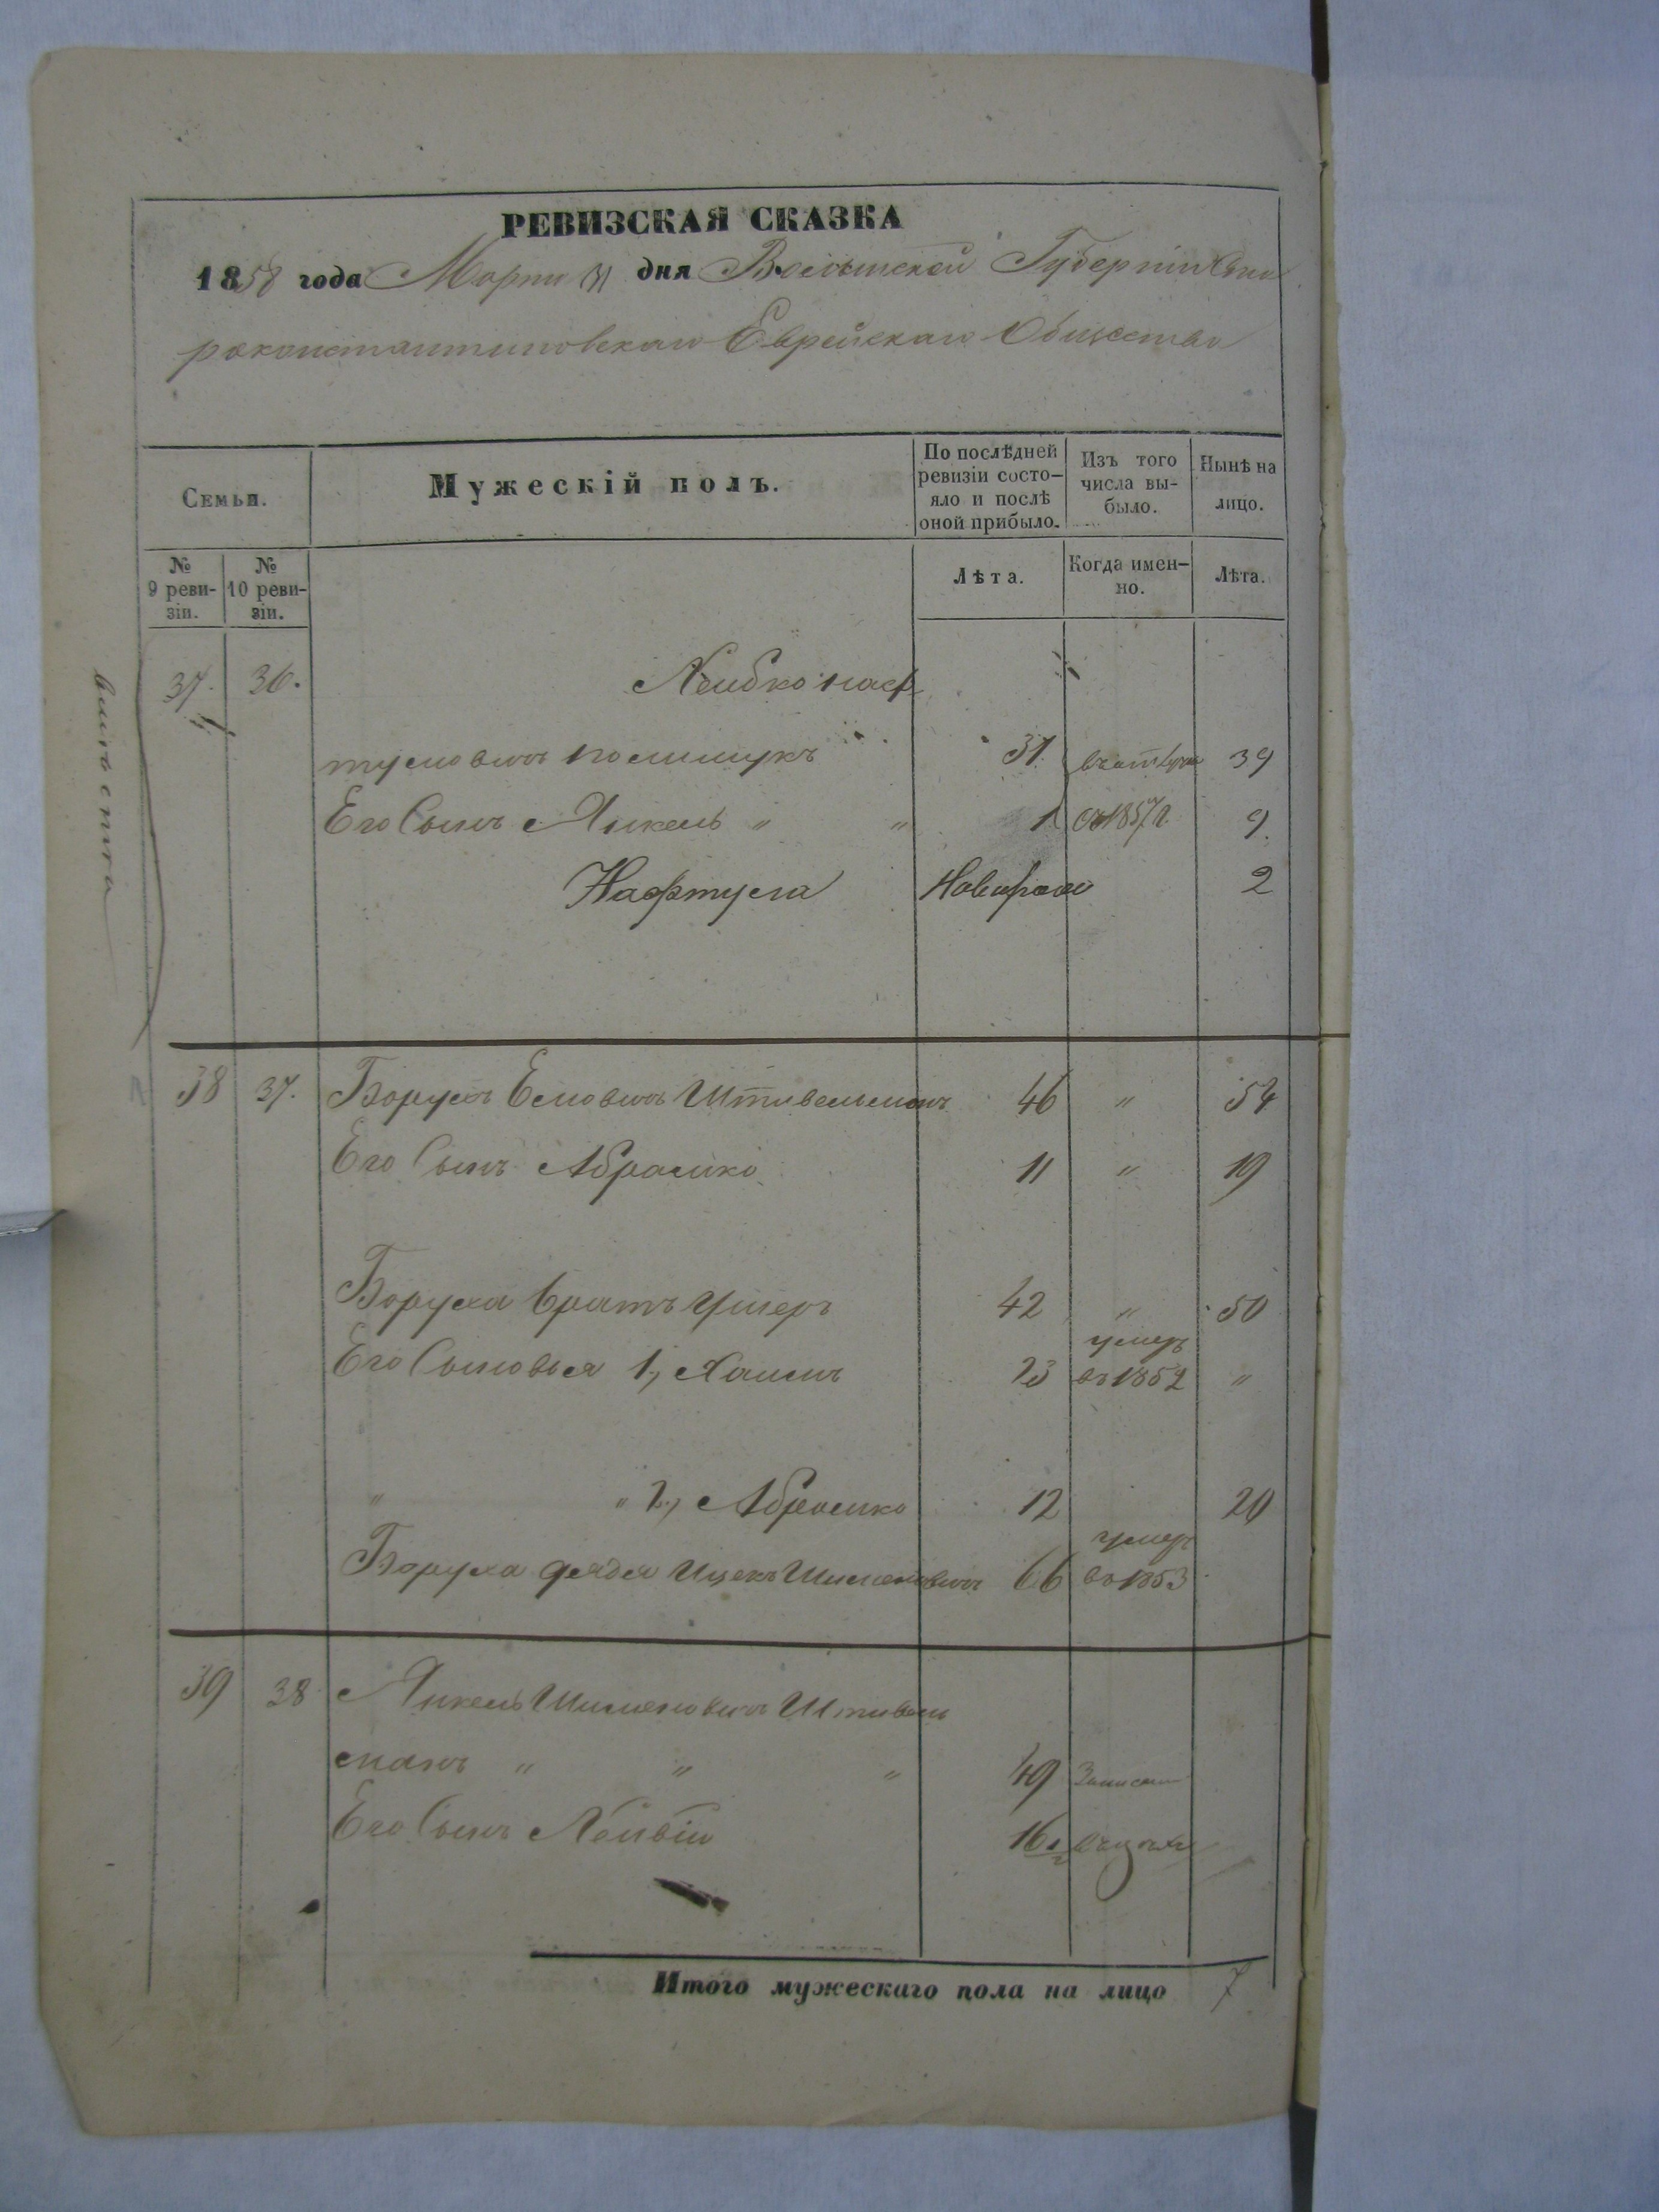 РЕВИЗСКАЯ СКАЗКА
1858 года Марта 31 дня Волынской Губерніи Ста
роконстантиновскаго Еврейскаго Общества
Семьи.
Мужескій полъ.
По послѣдней ревизіи состо-
яло и послѣ
оной прибыло.
Изъ того
числа вы-
было.
Нынѣ на
лицо.
№
9 реви-
зіи.
№
10 реви-
зіи.
Лѣта.
Когда имен-
но.
Лѣта.
37. 36. Лейбко Наф
туловичъ Полищукъ 31 39
Его Сынъ Янкель " " 1 съ 1857 г. 9.
Нафтула 2
38 37. Борухъ Елювичъ Штивельманъ 46 " 54
Его Сынъ Абрамко 11 " 19
Боруха братъ Ушеръ 42 " 50
Его Сыновья 1, Хаимъ 23 умеръ въ 1852 "
" " 2, Абрамко 12 20
Боруха дядя Ицекъ Шимоновичъ 66 умеръ въ 1853
39 38 Янкель Шимоновичъ Штивель
манъ " " " 49
Его Сынъ Лейвій 16
Итого мужескаго пола на лицо 7